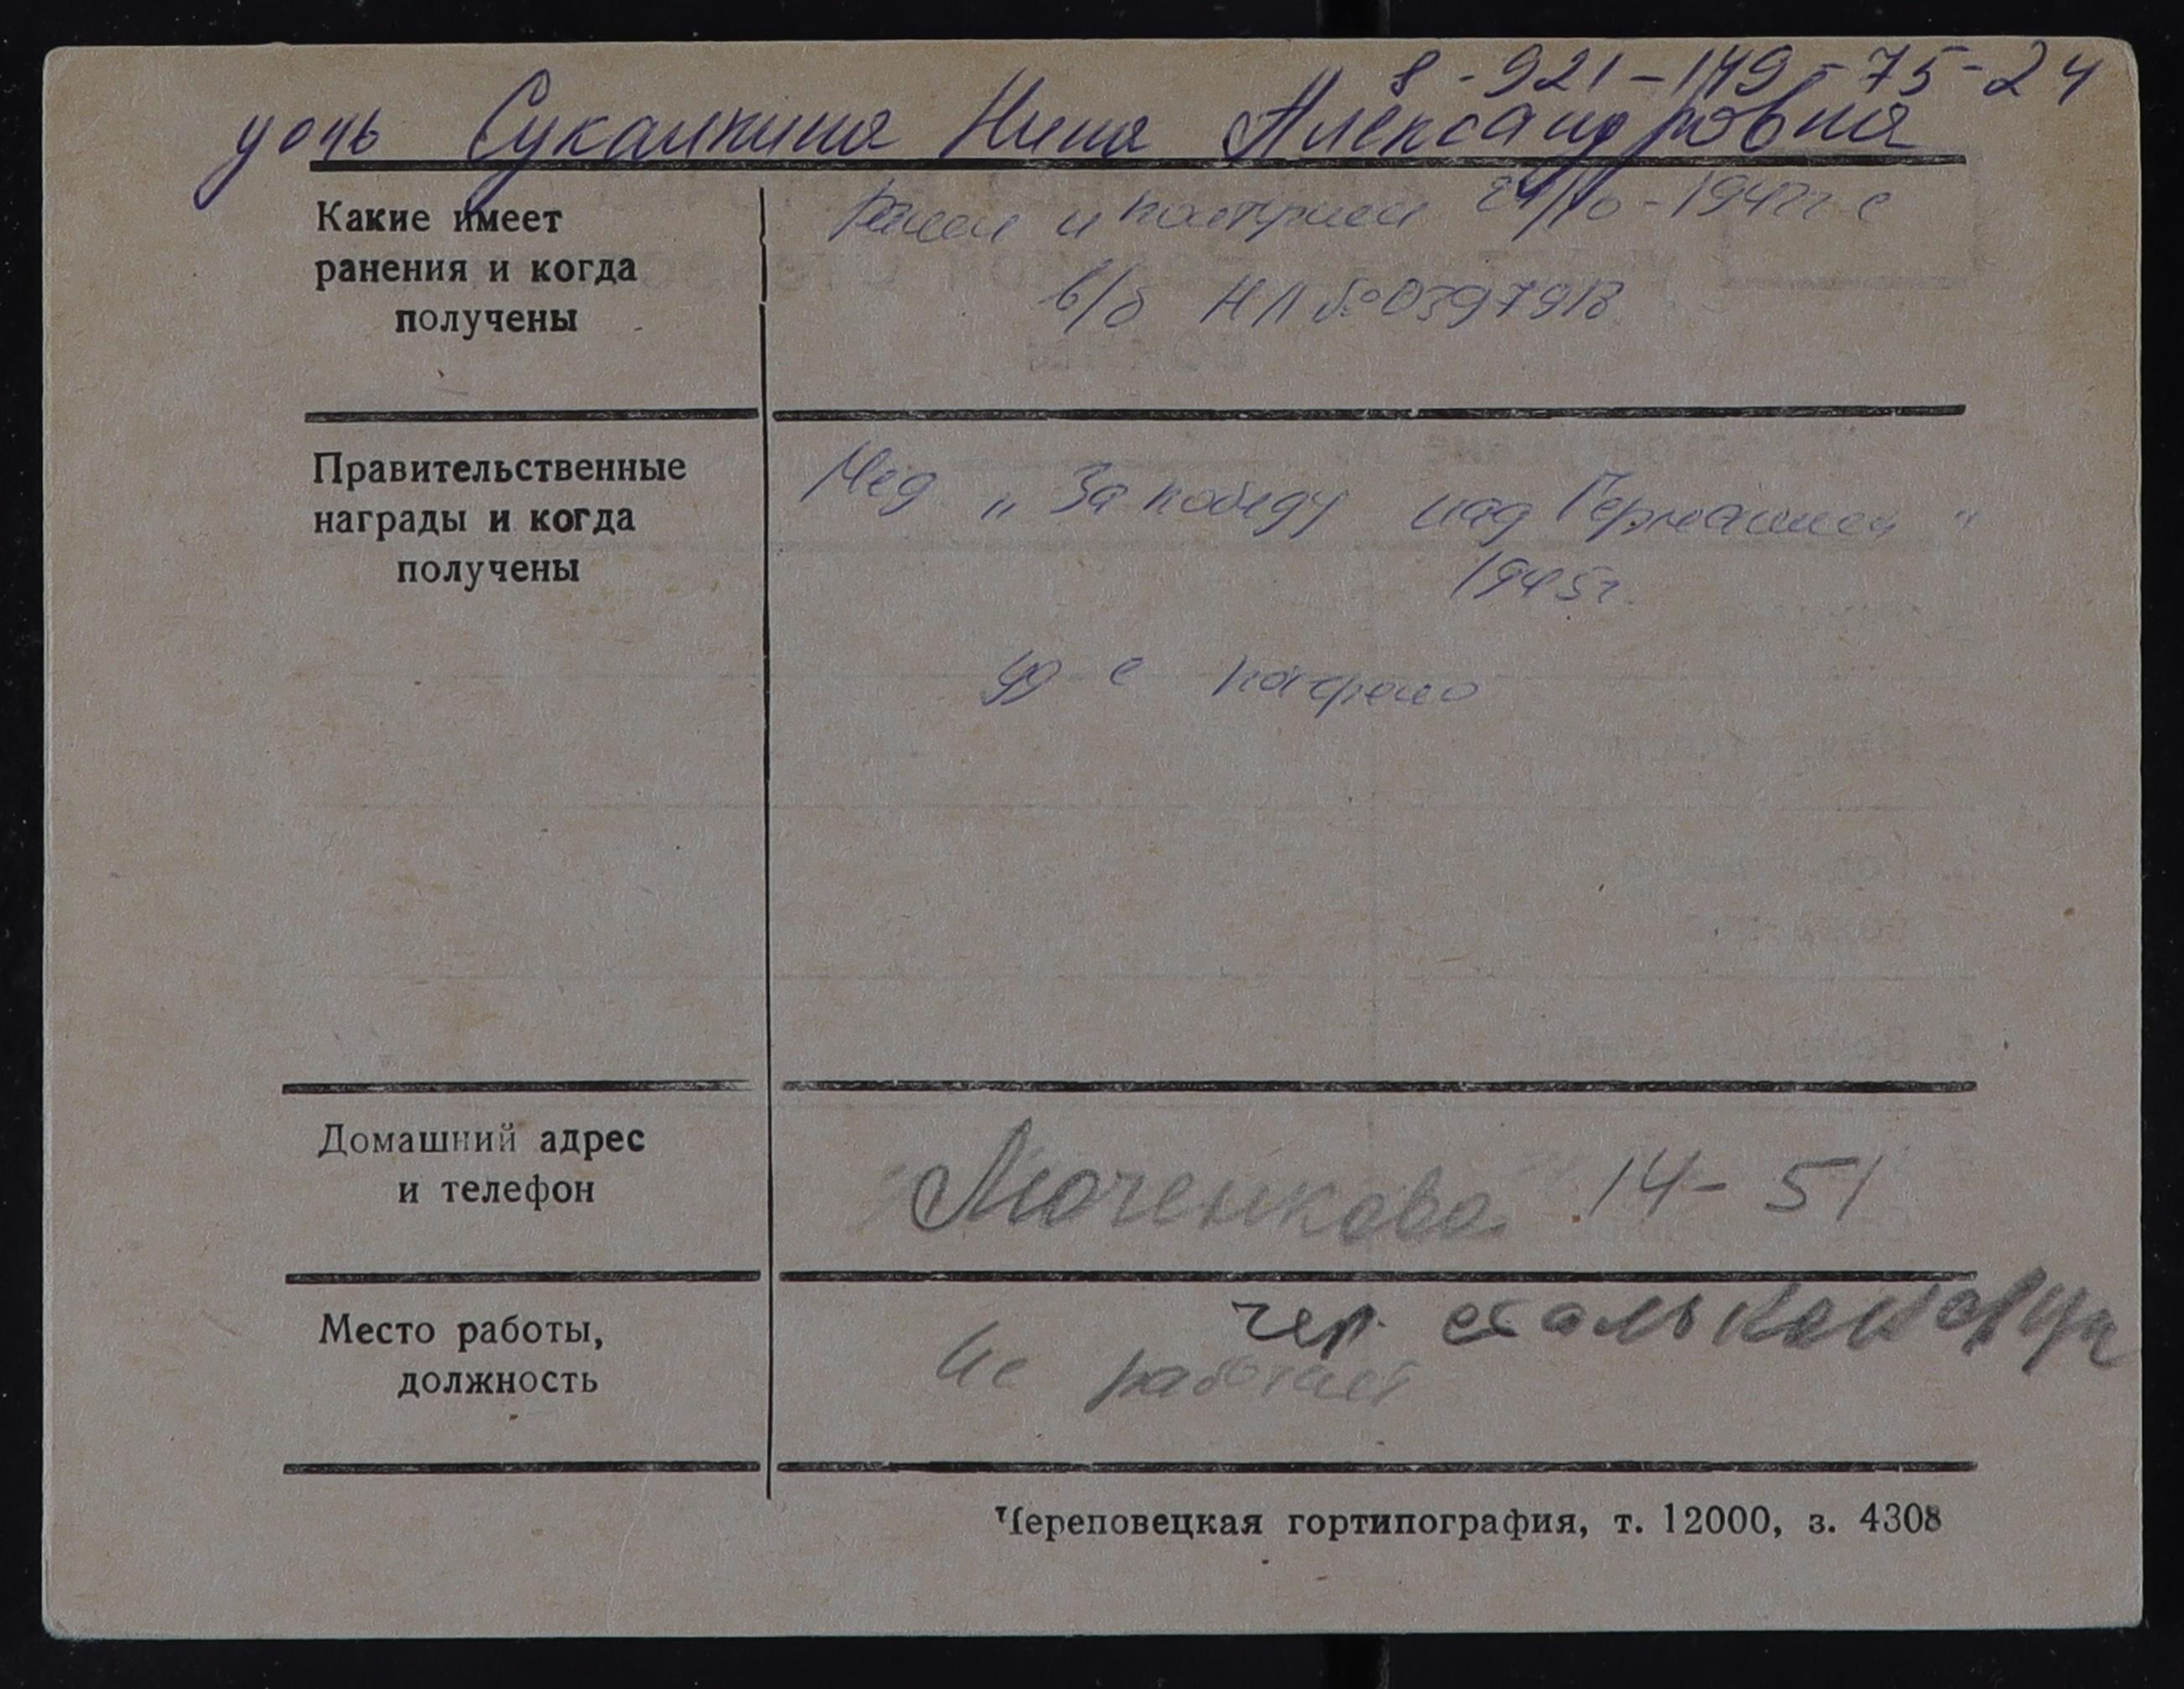 8-921-149-75-24
дочь Сукалкина Нина Александровна
Какие имеет
ранения и когда
получены
и 1942г
в/б НЛ № 0397918
Правительственные
награды и когда
получены
Мед „За победу над Германией"
1945г.
Домашний адрес
и телефон
Моченкова 14-51
Место работы,
должность
чер. сталь
Не работает
Череповецкая гортипография, т. 12000, з. 4308